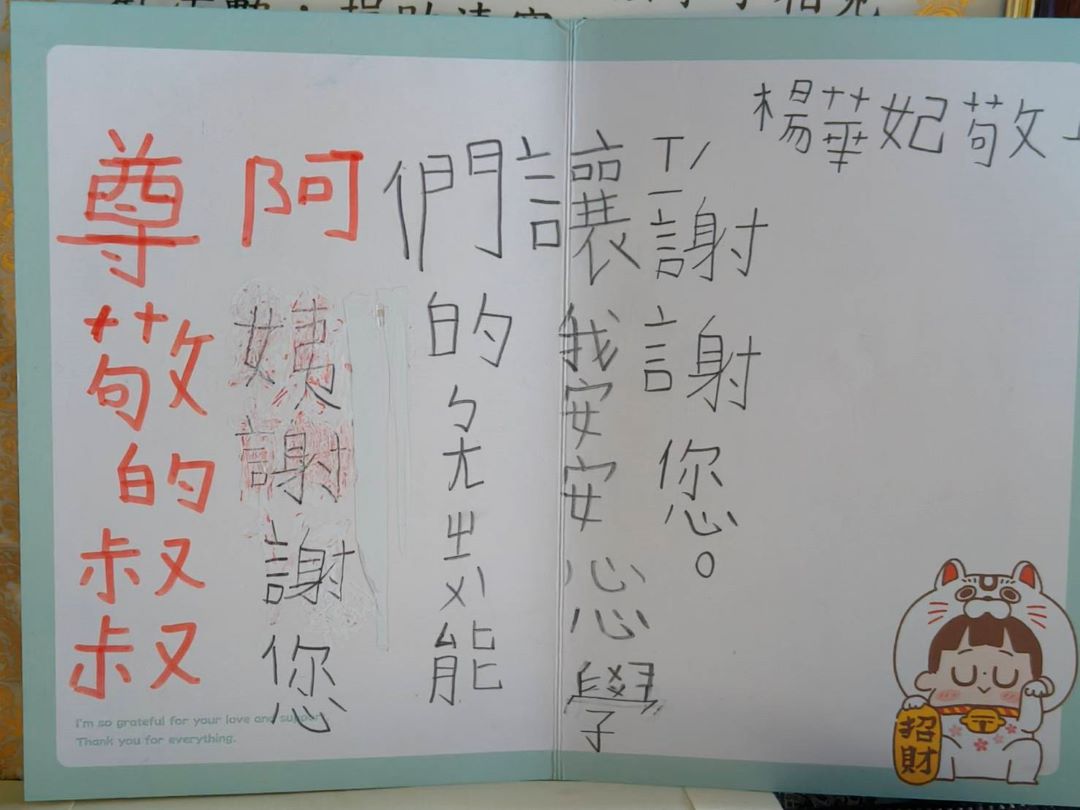 尊敬的叔叔
阿姨謝謝您
們的ㄅㄤㄓㄨˋ能
讓我安安心心學
ㄒㄧˊ謝謝您。
楊華妃敬
I'm so grateful for your love and support.
Thank you for everything.
招財